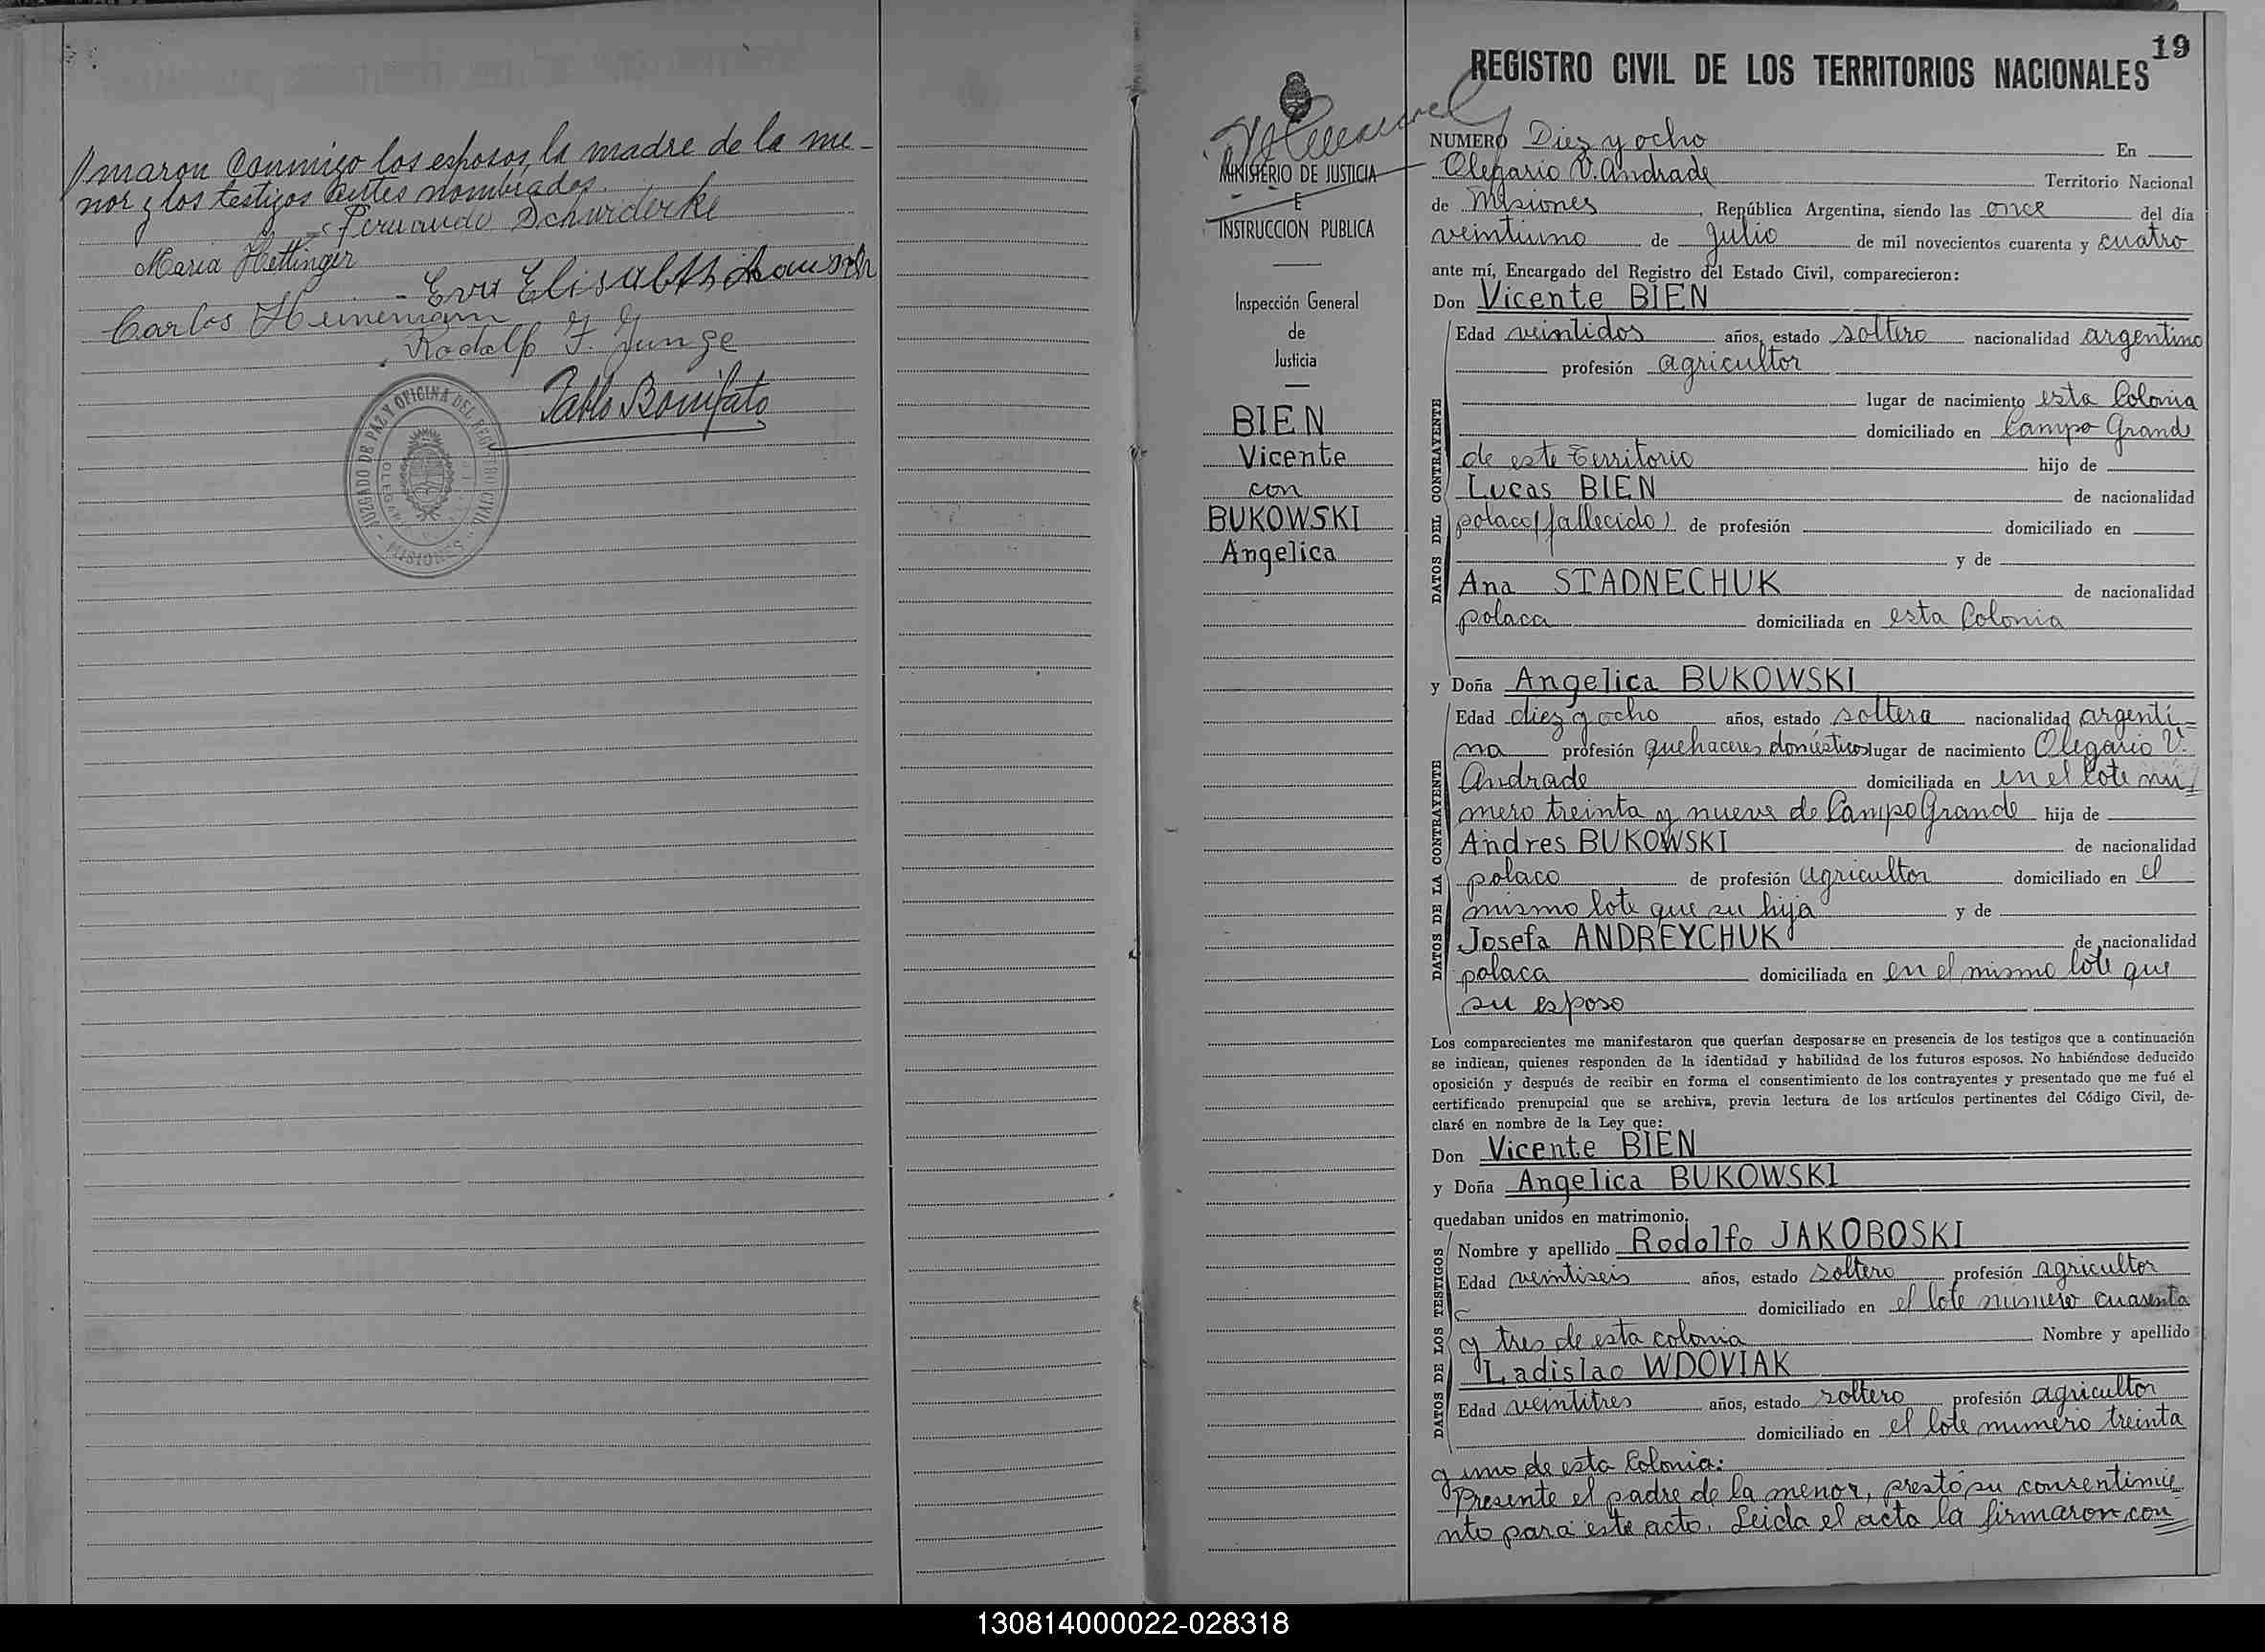 maron conmigo los esposos, la madre de la me-
nor y los testigos antes nombrados.
Fernando Schwiderke
Maria Hettinger
Eva Elisabeth
Carlos Heinemann
Rodolfo F. Junge
Pablo Bonifato
JUZGADO DE PAZ Y OFICINA DEL REGISTRO CIVIL
MISIONES
MINISTERIO DE JUSTICIA
E
INSTRUCCION PUBLICA
Inspección General
de
Justicia
BIEN
Vicente
con
BUKOWSKI
Angelica
19
REGISTRO CIVIL DE LOS TERRITORIOS NACIONALES
NUMERO Diez y ocho En
Olegario V. Andrade Territorio Nacional
de Misiones, República Argentina, siendo las once del día
veintiuno de Julio de mil novecientos cuarenta y cuatro
ante mí, Encargado del Registro del Estado Civil, comparecieron:
Don Vicente BIEN
DATOS DEL CONTRAYENTE
Edad veintidos años, estado soltero nacionalidad argentino
profesión agricultor
lugar de nacimiento esta Colonia
domiciliado en Campo Grande
de este Territorio hijo de
Lucas BIEN de nacionalidad
polaco (fallecido) de profesión domiciliado en
y de
Ana STADNECHUK de nacionalidad
polaca domiciliada en esta Colonia
y Doña Angelica BUKOWSKI
DATOS DE LA CONTRAYENTE
Edad diez y ocho años, estado soltera nacionalidad argenti-
na profesión quehaceres domésticos lugar de nacimiento Olegario V.
Andrade domiciliada en en el lote nu
mero treinta y nueve de Campo Grande hija de
Andres BUKOWSKI de nacionalidad
polaco de profesión agricultor domiciliado en el
mismo lote que su hija y de
Josefa ANDREYCHUK de nacionalidad
polaca domiciliada en en el mismo lote que
su esposo
Los comparecientes me manifestaron que querían desposarse en presencia de los testigos que a continuación
se indican, quienes responden de la identidad y habilidad de los futuros esposos. No habiéndose deducido
oposición y después de recibir en forma el consentimiento de los contrayentes y presentado que me fué el
certificado prenupcial que se archiva, previa lectura de los artículos pertinentes del Código Civil, de-
claré en nombre de la Ley que:
Don Vicente BIEN
y Doña Angelica BUKOWSKI
quedaban unidos en matrimonio.
DATOS DE LOS TESTIGOS
Nombre y apellido Rodolfo JAKOBOSKI
Edad veintiseis años, estado soltero profesión agricultor
domiciliado en el lote numero cuarenta
y tres de esta colonia Nombre y apellido
Ladislao WDOVIAK
Edad veintitres años, estado soltero profesión agricultor
domiciliado en el lote numero treinta
y uno de esta Colonia:
Presente el padre de la menor, prestó su consentimie
nto para este acto. Leida el acta la firmaron con
130814000022-028318